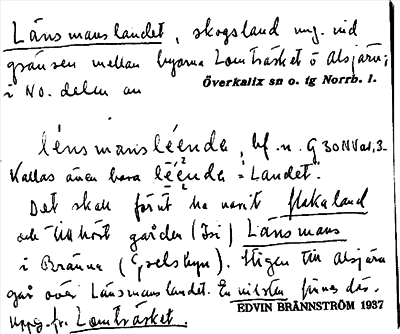 Länsmanslandet, skogsland mg. vid
gränsen mellan byarna Lomträsket o Alsjärv;
i NO. delen av
Överkalix sn o. tg Norrb. l.
lénsmansléenda, bf. n. G 30 NV
Kallas även bara léenda = Landet.
Det skall förut ha varit flakaland
och tillhört gården (Isi) Länsmans
i Bränna (Grelsbyn). Stigen till Alsjärv
går över Länsmanslandet. En vilsten finns där.
Uppg. fr. Lomträsket.
EDVIN BRÄNNSTRÖM 1937